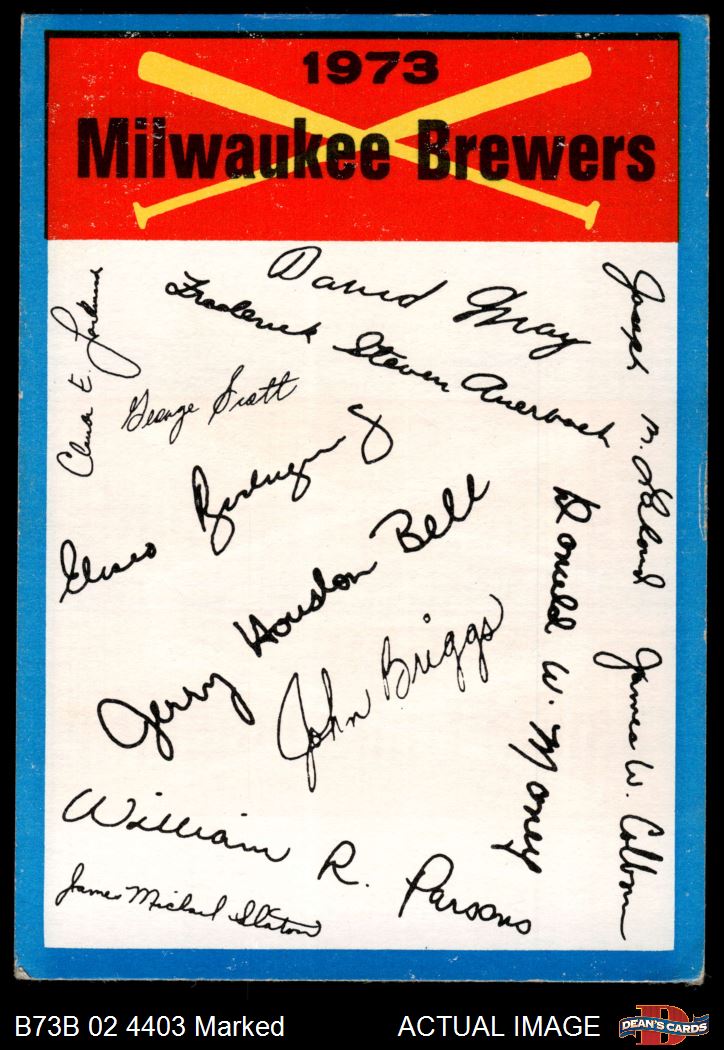 1973
Milwaukee Brewers
David May
Frederick Steven Auerbach
Joseph M.
George Scott
E.
Eliseo Rodriguez
Jerry Houston Bell
Donald W. Money
John Briggs
James W. Colborn
William R. Parsons
James Michael Slaton
B73B 02 4403 Marked
ACTUAL IMAGE
D
DEAN'S CARDS